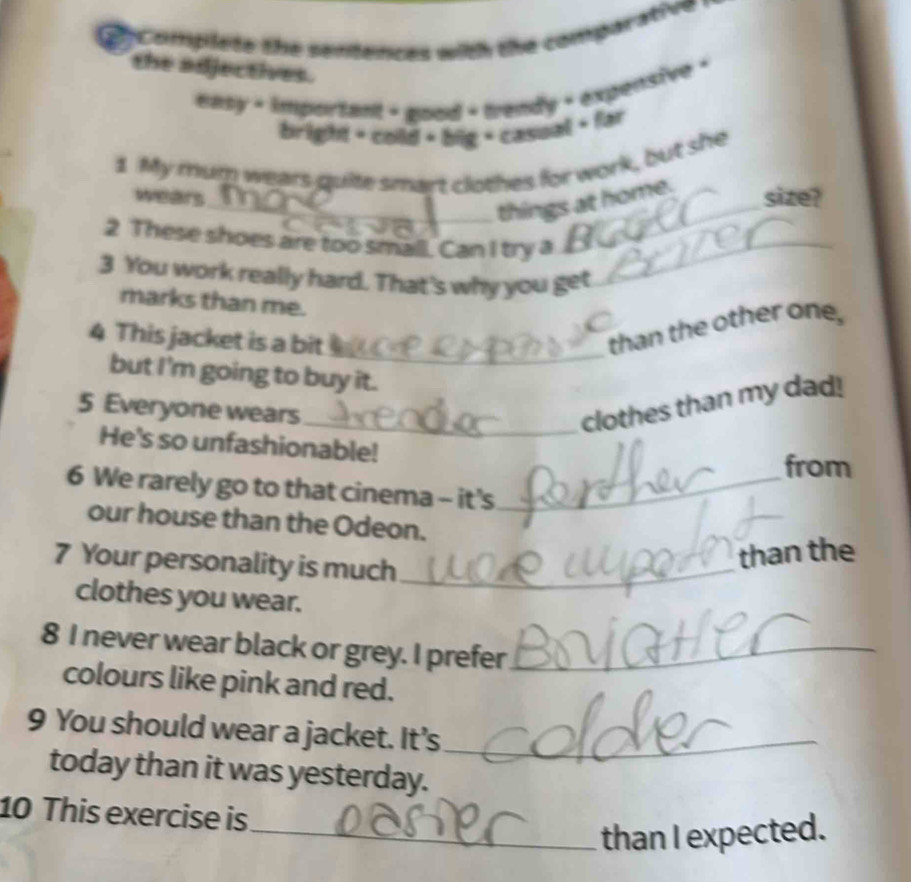 2 Complete the sentences with the comparative
the adjectives.
easy • important • good • trendy • expensive •
bright • cold • big • casual • far
1 My mum wears quite smart clothes for work, but she
wears more casual things at home.
2 These shoes are too small. Can I try a Bigger size?
3 You work really hard. That's why you get
marks than me.
4 This jacket is a bit more expensive than the other one,
but I'm going to buy it.
5 Everyone wears clothes than my dad!
He's so unfashionable!
6 We rarely go to that cinema – it's further from
our house than the Odeon.
7 Your personality is much more important than the
clothes you wear.
8 I never wear black or grey. I prefer
colours like pink and red.
9 You should wear a jacket. It's colder
today than it was yesterday.
10 This exercise is easier than I expected.